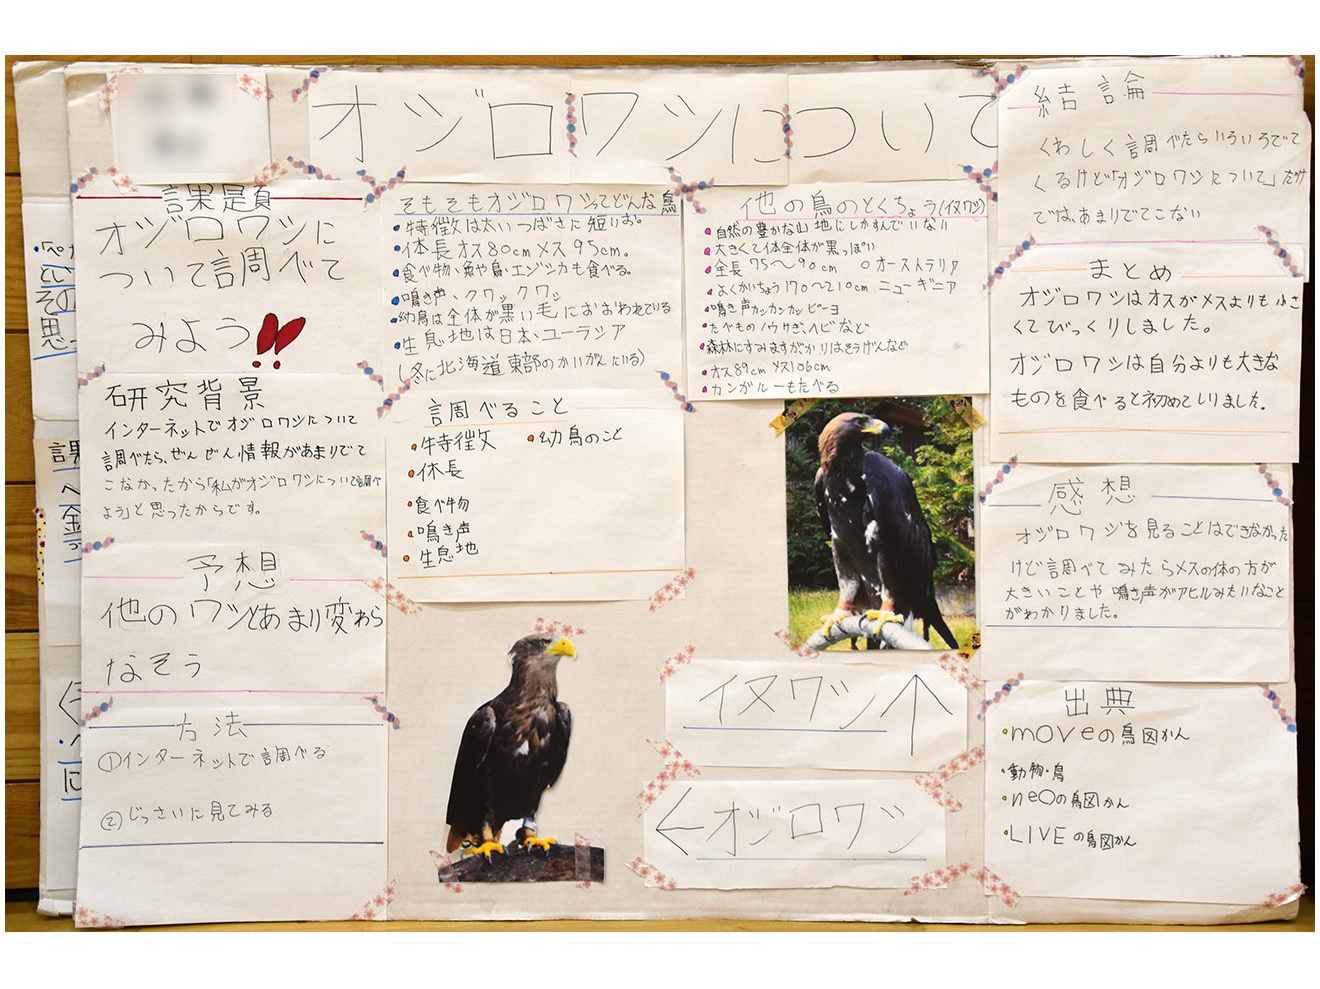 オジロワシについて
課題
オジロワシに
ついて調べて
みよう!!
研究背景
インターネットでオジロワシについて
調べたら、ぜんぜん情報があまりでて
こなかったから「私がオジロワシについて調べ
よう」と思ったからです。
予想
他のワシとあまり変わら
なそう
方法
①インターネットで調べる
②じっさいに見てみる
そもそもオジロワシってどんな鳥
・特徴は太いつばさに短いお。
・体長オス80cmメス95cm。
・食べ物、魚や鳥、エゾシカも食べる。
・鳴き声、クワックワッ
・幼鳥は全体が黒い毛におおわれている
・生息地は日本、ユーラシア
(冬に北海道東部のかいがんにいる)
調べること
・特徴 ・幼鳥のこと
・体長
・食べ物
・鳴き声
・生息地
他の鳥のとくちょう(イヌワシ)
・自然の豊かな山地にしかすんでいない
・大きくて体全体が黒っぽい
・全長75〜90cm ○オーストラリア
・よくかいちょう170〜210cm ニューギニア
・鳴き声カッカンカッピーヨ
・たべものノウサギ、ヘビなど
・森林にすみますがかりはそうげんなど
・オス89cmメス106cm
・カンガルーもたべる
イヌワシ↑
←オジロワシ
結論
くわしく調べたらいろいろでて
くるけど「オジロワシについて」だけ
では、あまりでてこない
まとめ
オジロワシはオスがメスよりも小さ
くてびっくりしました。
オジロワシは自分よりも大きな
ものを食べると初めてしりました。
感想
オジロワシを見ることはできなかった
けど調べてみたらメスの体の方が
大きいことや鳴き声がアヒルみたいなこと
がわかりました。
出典
・moveの鳥図かん
・動物・鳥
・neoの鳥図かん
・LIVEの鳥図かん